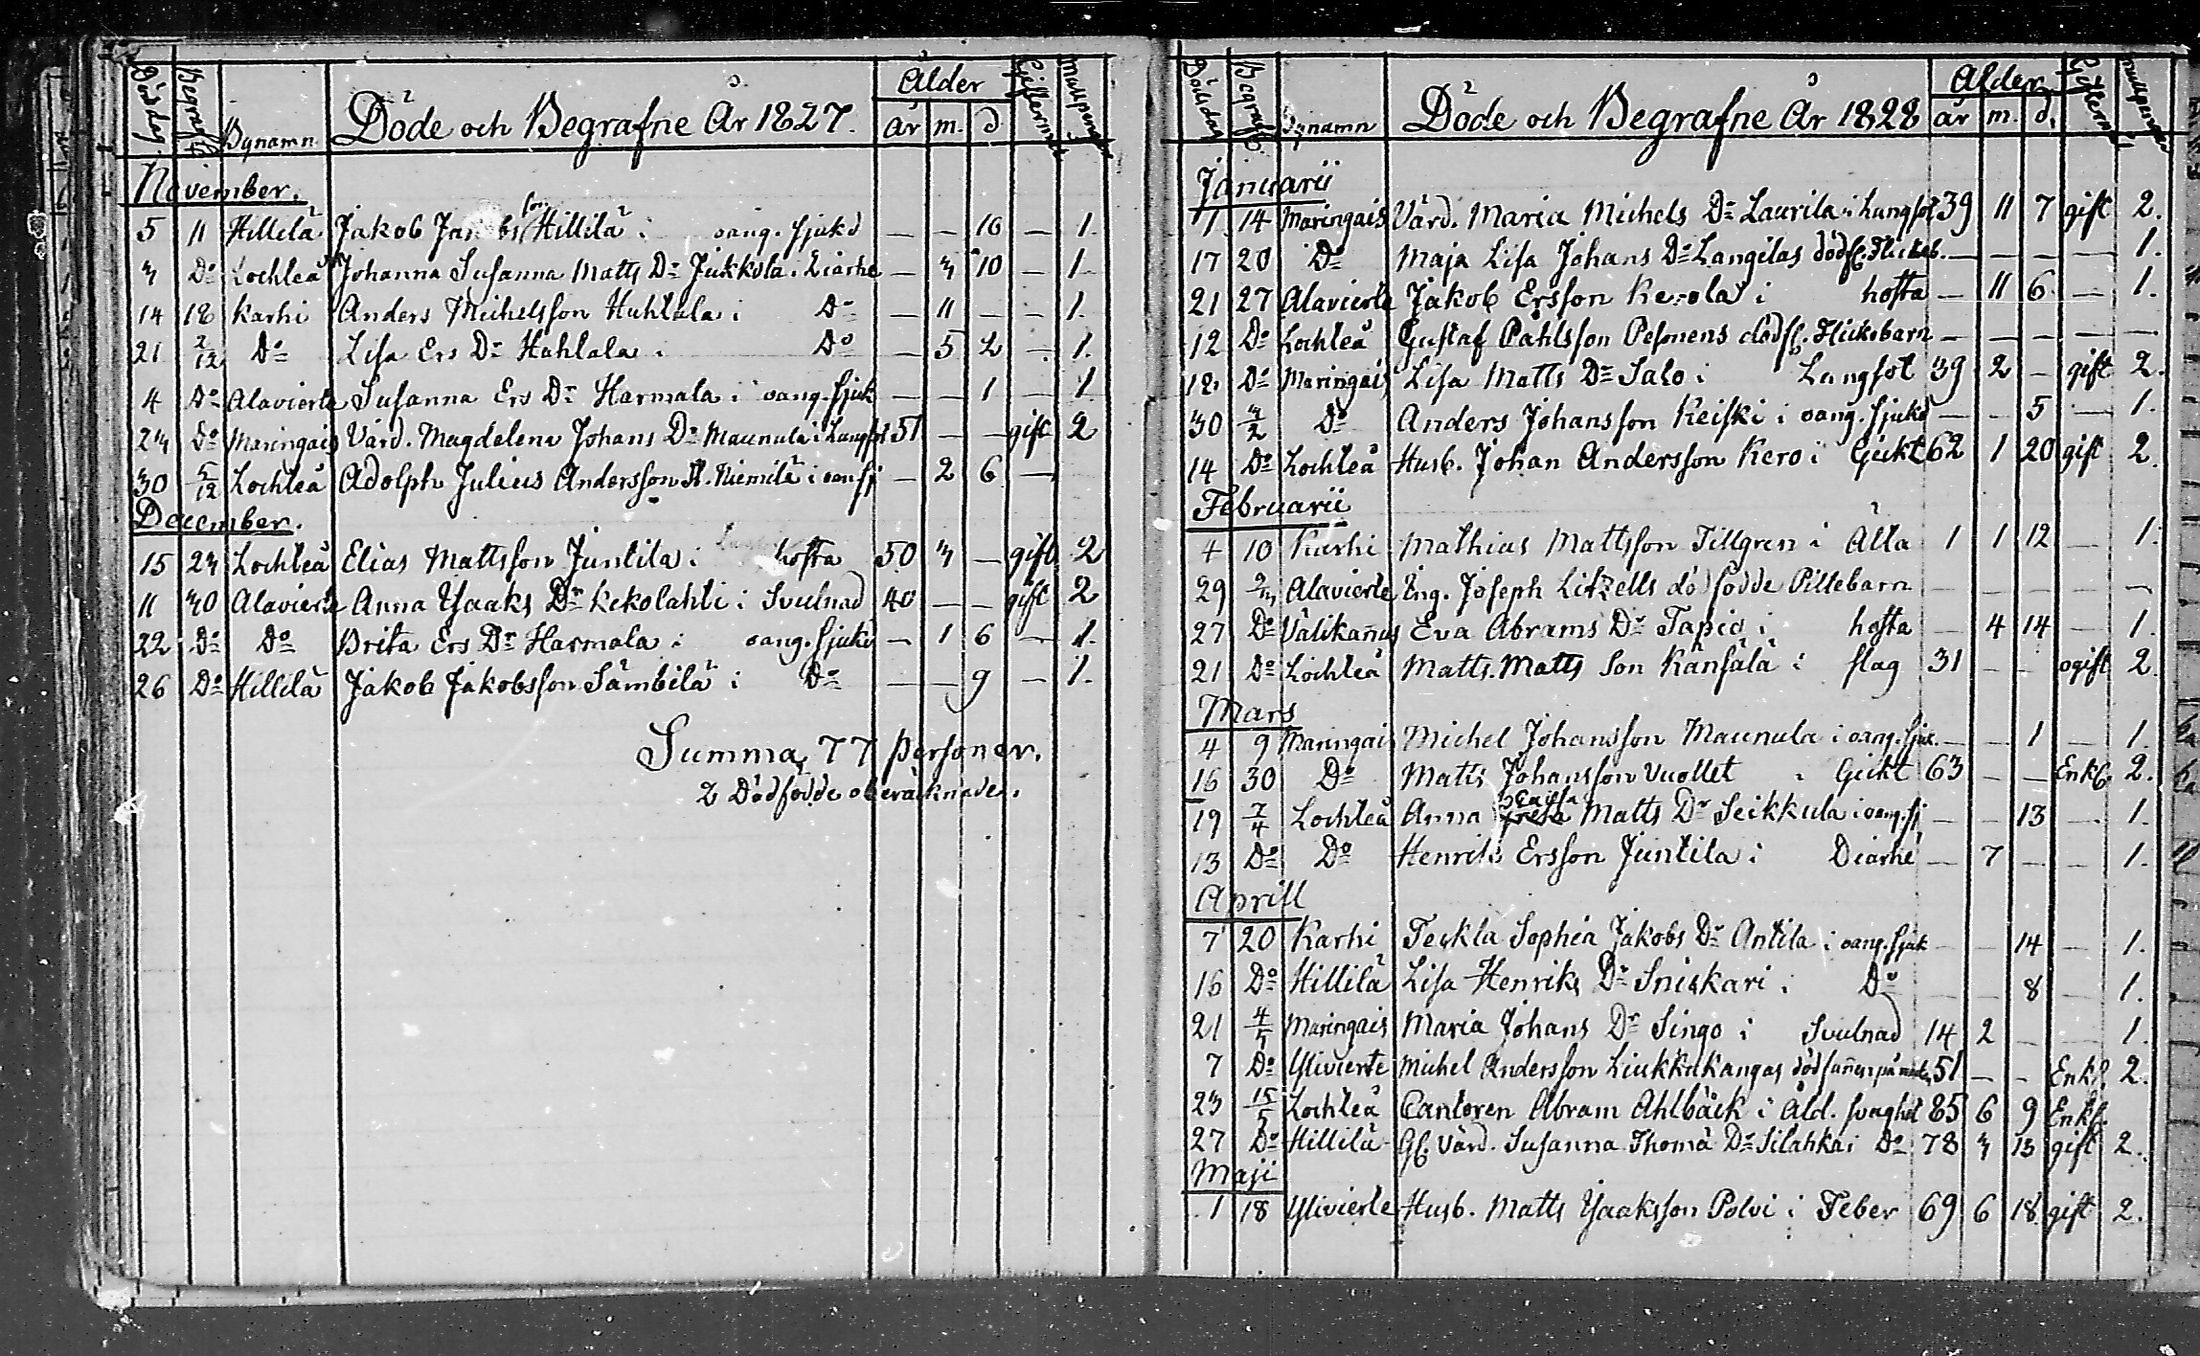 Dödsdag Begrafn. Bynamn Döde och Begrafne År 1827. Ålder år m. d. Giftermål Mullpengar
November.
5 11 Hillilä Jakob Jakobs son Hillilä i oang. sjukd — — 16 — 1.
3 Do Lochteå Johanna Susanna Matts Dr Jukkola i Diarhe — 3 10 — 1.
14 18 Karhi Anders Michelsson Huhtala i Do — 11 — — 1.
21 2/12 Do Lisa Ers Dr Huhtala i Do — 5 2 — 1.
4 Do Alavierte Susanna Ers Dr Harmala i oang. sjuk — — 1 1
23 Do Maringais Värd. Magdelena Johans Dr Maunula i Lungsot 51 — — gift 2
30 5/12 Lochteå Adolph Julius Andersson Niemilä i oan. sj — 2 6 —
December.
15 23 Lochteå Elias Mattsson Juntila i hosta 50 3 — gift 2
11 30 Alavierte Anna Ysaaks Dr Kekolahti i Svulnad 40 — — gift 2
22 Do Do Brita Ers Dr Harmala i oang. sjukd — 1 6 — 1.
26 Do Hillilä Jakob Jakobsson Sämbilä i Do — — 9 — 1.
Summa, 77 personer.
2 Dödfödde oberäknade.
Dödsdag Begrafn. Bynamn Döde och Begrafne År 1828 Ålder år m. d. Gifterm. Mullpengar
Januarii
1 14 Maringais Värd. Maria Michels Dr Laurila i Lungsot 39 11 7 gift 2.
17 20 Do Maja Lisa Johans Dr Langilas dödf. Flickeb. — — — — 1.
21 27 Alavierte Jakob Ersson Kerola i hosta — 11 6 — 1.
12 Do Lochteå Gustaf Påhlsson Pesonens dödf. Flickebarn — — — — —
18 Do Maringais Lisa Matts Dr Salo i Lungsot 39 2 — gift 2.
30 3/2 Do Anders Johansson Keiski i oang. sjukd — — 5 — 1.
14 Do Lochteå Husb. Johan Andersson Kero i Gickt 62 1 20 gift 2.
Februarii
4 10 Karhi Mathias Mattsson Tillgren i Älta 1 1 12 — 1.
29 2/3 Alavierte Eng. Joseph Litzells dödfödde Piltebarn — — — — —
27 Do Välikañus Eva Abrams Dr Tapio i hosta — 4 14 — 1.
21 Do Lochteå Matts Matts Son Känsälä i slag 31 — — ogift 2.
Mars
4 9 Maringais Michel Johansson Maunula i oang. sjuk. — — 1 — 1.
16 30 Do Matts Johansson Vuollet i Gickt 63 — — Enkl. 2.
19 7/4 Lochteå Anna Matts Dr Seikkula i oang. sj — — 13 — 1.
13 Do Do Henrik Ersson Juntila i Diarhé — 7 — — 1.
Aprill
7 20 Karhi Teckla Sophia Jakobs Dr Antila i oang. sjuk — — 14 — 1.
16 Do Hillilä Lisa Henriks Dr Sniskari i Do — — 8 — 1.
21 4/5 Maringais Maria Johans Dr Singo i Svulnad 14 2 — — 1.
7 Do Ylivierte Michel Andersson Liukkokangas död fuñen på 51 — — Enkl. 2.
23 15/5 Lochteå Cantoren Abram Ahlbäck i Åld. svaghet 85 6 9 Enkl.
27 Do Hillilä Gl. Värd. Susanna Thomä Dr Silahka i Do 78 3 13 gift 2.
Maji
1 18 Ylivierte Husb. Matts Ysaaksson Polvi i Feber 69 6 18 gift 2.